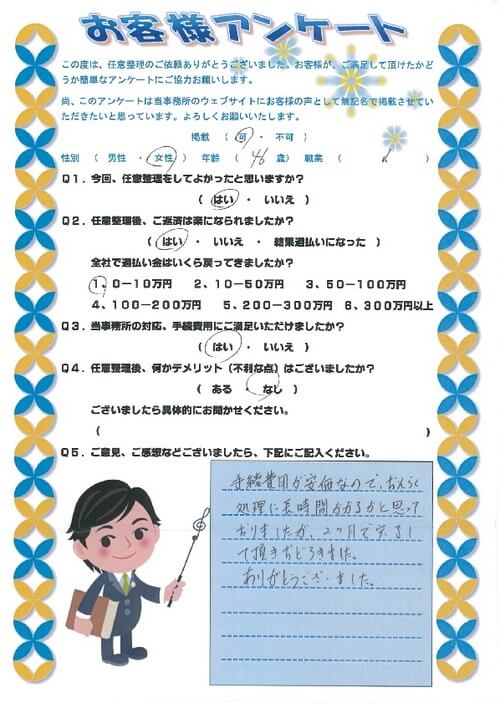 お客様アンケート
この度は、任意整理のご依頼ありがとうございました。お客様が、ご満足して頂けたかど
うか簡単なアンケートにご協力お願いします。
尚、このアンケートは当事務所のウェブサイトにお客様の声として無記名で掲載させてい
ただきたいと思っています。よろしくお願いいたします。
掲載 ( 可 ・ 不可 )
性別 ( 男性 ・ 女性 ) 年齢 ( 46 歳) 職業 ( )
Q1．今回、任意整理をしてよかったと思いますか？
( はい ・ いいえ )
Q2．任意整理後、ご返済は楽になられましたか？
( はい ・ いいえ ・ 結果過払いになった )
全社で過払い金はいくら戻ってきましたか？
1、0－10万円 2、10－50万円 3、50－100万円
4、100－200万円 5、200－300万円 6、300万円以上
Q3．当事務所の対応、手続費用にご満足いただけましたか？
( はい ・ いいえ )
Q4．任意整理後、何かデメリット（不利な点）はございましたか？
( ある ・ なし )
ございましたら具体的にお聞かせください。
( )
Q5．ご意見、ご感想などございましたら、下記にご記入ください。
手続費用が安価なので、おそらく
処理に長時間かかるかと思って
おりましたが、2ヶ月で完了し
て頂きおどろきました。
ありがとうございました。